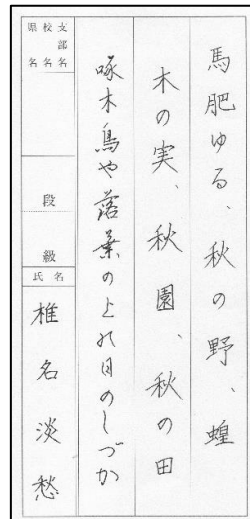 馬肥ゆる、秋の野、蝗
木の実、秋園、秋の田
啄木鳥や落葉の上の日のしづか
支部名
校名
県名
段
級
氏名
椎名淡愁